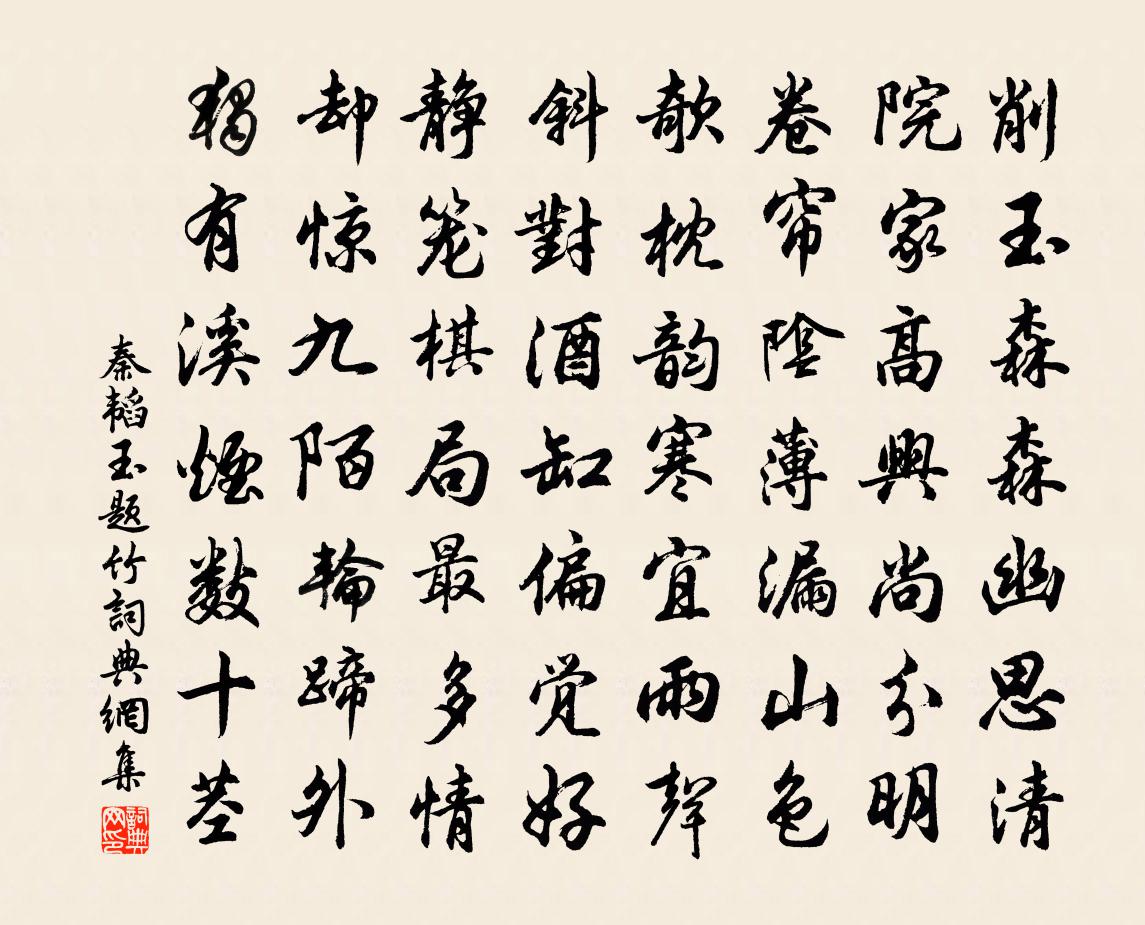 削玉森森幽思清
院家髙興尚分明
卷帘陰薄漏山色
欹枕韵寒宜雨聲
斜對酒缸偏觉好
静笼棋局最多情
却惊九陌輪蹄外
獨有溪煙数十茎
秦韬玉题竹詞典網集
詞典网印